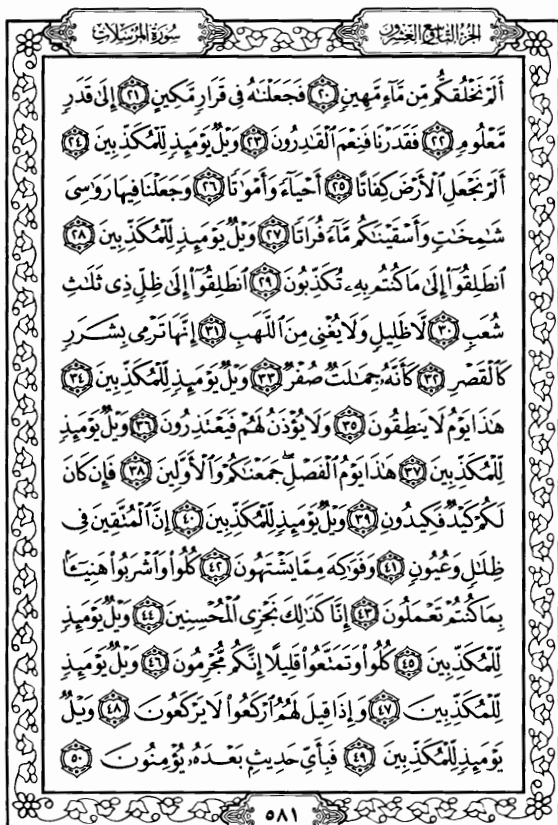 سُورَةُ المُرْسَلَات
الجُزْءُ التَّاسِعُ وَالعِشْرُونَ
أَلَمْ نَخْلُقكُّم مِّن مَّآءٍ مَّهِينٍ ٢٠ فَجَعَلْنَٰهُ فِى قَرَارٍ مَّكِينٍ ٢١ إِلَىٰ قَدَرٍ
مَّعْلُومٍ ٢٢ فَقَدَرْنَا فَنِعْمَ الْقَٰدِرُونَ ٢٣ وَيْلٌ يَوْمَئِذٍ لِّلْمُكَذِّبِينَ ٢٤
أَلَمْ نَجْعَلِ الْأَرْضَ كِفَاتًا ٢٥ أَحْيَآءً وَأَمْوَٰتًا ٢٦ وَجَعَلْنَا فِيهَا رَوَٰسِىَ
شَٰمِخَٰتٍ وَأَسْقَيْنَٰكُم مَّآءً فُرَاتًا ٢٧ وَيْلٌ يَوْمَئِذٍ لِّلْمُكَذِّبِينَ ٢٨
ٱنطَلِقُوٓا۟ إِلَىٰ مَا كُنتُم بِهِۦ تُكَذِّبُونَ ٢٩ ٱنطَلِقُوٓا۟ إِلَىٰ ظِلٍّ ذِى ثَلَٰثِ
شُعَبٍ ٣٠ لَّا ظَلِيلٍ وَلَا يُغْنِى مِنَ اللَّهَبِ ٣١ إِنَّهَا تَرْمِى بِشَرَرٍ
كَالْقَصْرِ ٣٢ كَأَنَّهُۥ جِمَٰلَتٌ صُفْرٌ ٣٣ وَيْلٌ يَوْمَئِذٍ لِّلْمُكَذِّبِينَ ٣٤
هَٰذَا يَوْمُ لَا يَنطِقُونَ ٣٥ وَلَا يُؤْذَنُ لَهُمْ فَيَعْتَذِرُونَ ٣٦ وَيْلٌ يَوْمَئِذٍ
لِّلْمُكَذِّبِينَ ٣٧ هَٰذَا يَوْمُ الْفَصْلِ ۖ جَمَعْنَٰكُمْ وَالْأَوَّلِينَ ٣٨ فَإِن كَانَ
لَكُمْ كَيْدٌ فَكِيدُونِ ٣٩ وَيْلٌ يَوْمَئِذٍ لِّلْمُكَذِّبِينَ ٤٠ إِنَّ الْمُتَّقِينَ فِى
ظِلَٰلٍ وَعُيُونٍ ٤١ وَفَوَٰكِهَ مِمَّا يَشْتَهُونَ ٤٢ كُلُوا۟ وَاشْرَبُوا۟ هَنِيٓـًٔۢا
بِمَا كُنتُمْ تَعْمَلُونَ ٤٣ إِنَّا كَذَٰلِكَ نَجْزِى الْمُحْسِنِينَ ٤٤ وَيْلٌ يَوْمَئِذٍ
لِّلْمُكَذِّبِينَ ٤٥ كُلُوا۟ وَتَمَتَّعُوا۟ قَلِيلًا إِنَّكُم مُّجْرِمُونَ ٤٦ وَيْلٌ يَوْمَئِذٍ
لِّلْمُكَذِّبِينَ ٤٧ وَإِذَا قِيلَ لَهُمُ ارْكَعُوا۟ لَا يَرْكَعُونَ ٤٨ وَيْلٌ
يَوْمَئِذٍ لِّلْمُكَذِّبِينَ ٤٩ فَبِأَىِّ حَدِيثٍۭ بَعْدَهُۥ يُؤْمِنُونَ ٥٠
٥٨١